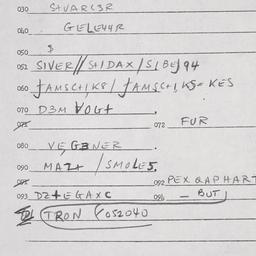 030 STUARC3R
040 GELEUUR
050 $
051 SIVER // STIDAX / SIBEJ 94
060 JAMSCHIKS / JAMSCHIKS- KES
070 D3M VOGT .
072 FUR
080 VE, GBNER .
090 MAZT / SMOLES.
092 PEX QAPHART
093 DZ+EGAXC
096 - BUT
TRON 4052040